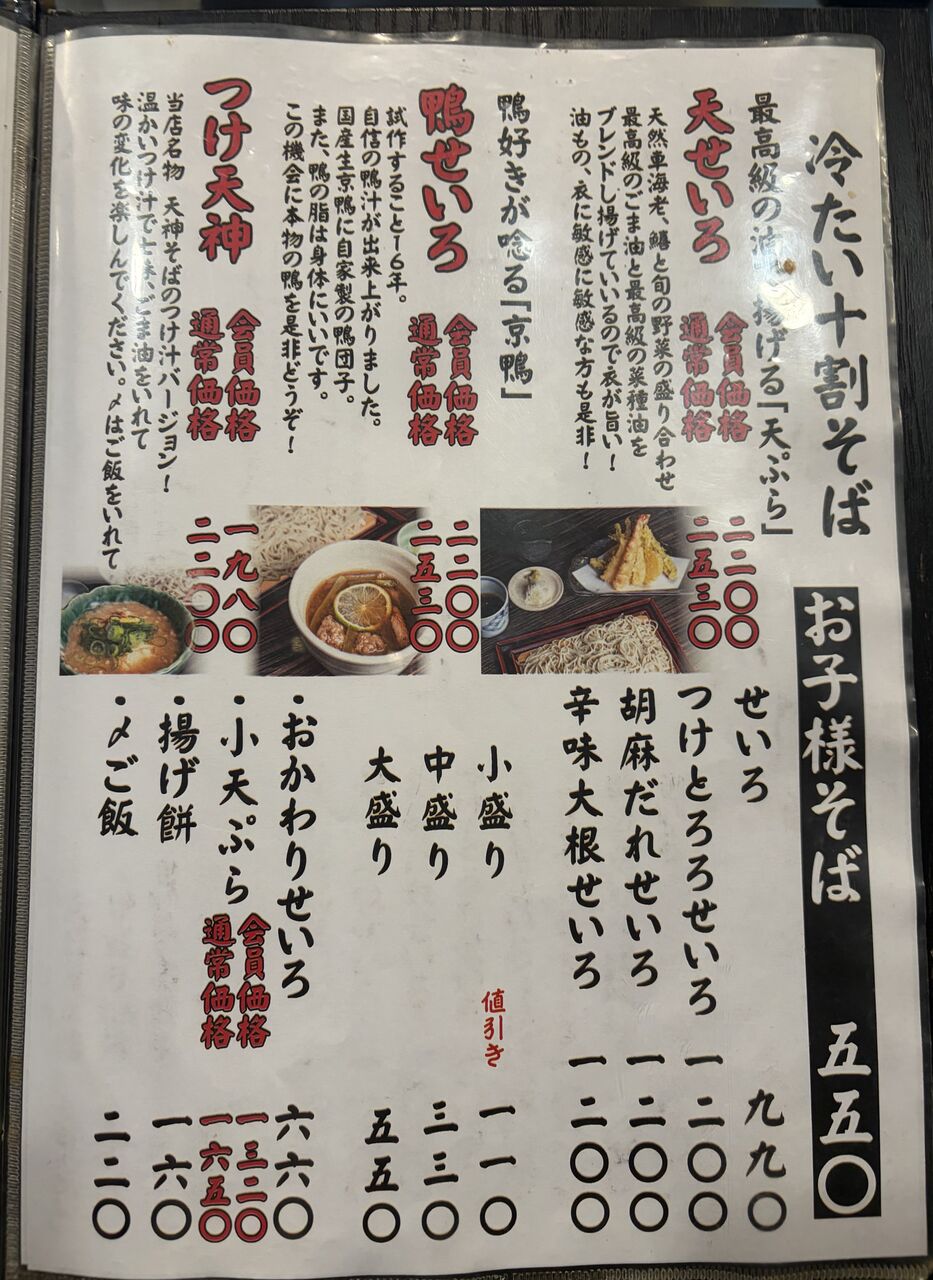 冷たい十割そば
最高級の油で揚げる「天ぷら」
天せいろ
会員価格 二二〇〇
通常価格 二五三〇
天然車海老、鱚と旬の野菜の盛り合わせ
最高級のごま油と最高級の菜種油を
ブレンドし揚げていいるので衣が旨い！
油もの、衣に敏感に敏感な方も是非！
鴨好きが唸る「京鴨」
鴨せいろ
会員価格 二二〇〇
通常価格 二五三〇
試作すること16年。
自信の鴨汁が出来上がりました。
国産生京鴨に自家製の鴨団子。
また、鴨の脂は身体にいいです。
この機会に本物の鴨を是非どうぞ！
つけ天神
会員価格 一九八〇
通常価格 二二〇〇
当店名物 天神そばのつけ汁バージョン！
温かいつけ汁で七味、ごま油をいれて
味の変化を楽しんでください。〆はご飯をいれて
お子様そば 五五〇
せいろ 九九〇
つけとろろせいろ 一二〇〇
胡麻だれせいろ 一二〇〇
辛味大根せいろ 一二〇〇
小盛り 値引き 一一〇
中盛り 三三〇
大盛り 五五〇
・おかわりせいろ 六六〇
・小天ぷら 会員価格 一三二〇
通常価格 一六五〇
・揚げ餅 一六〇
・〆ご飯 二二〇